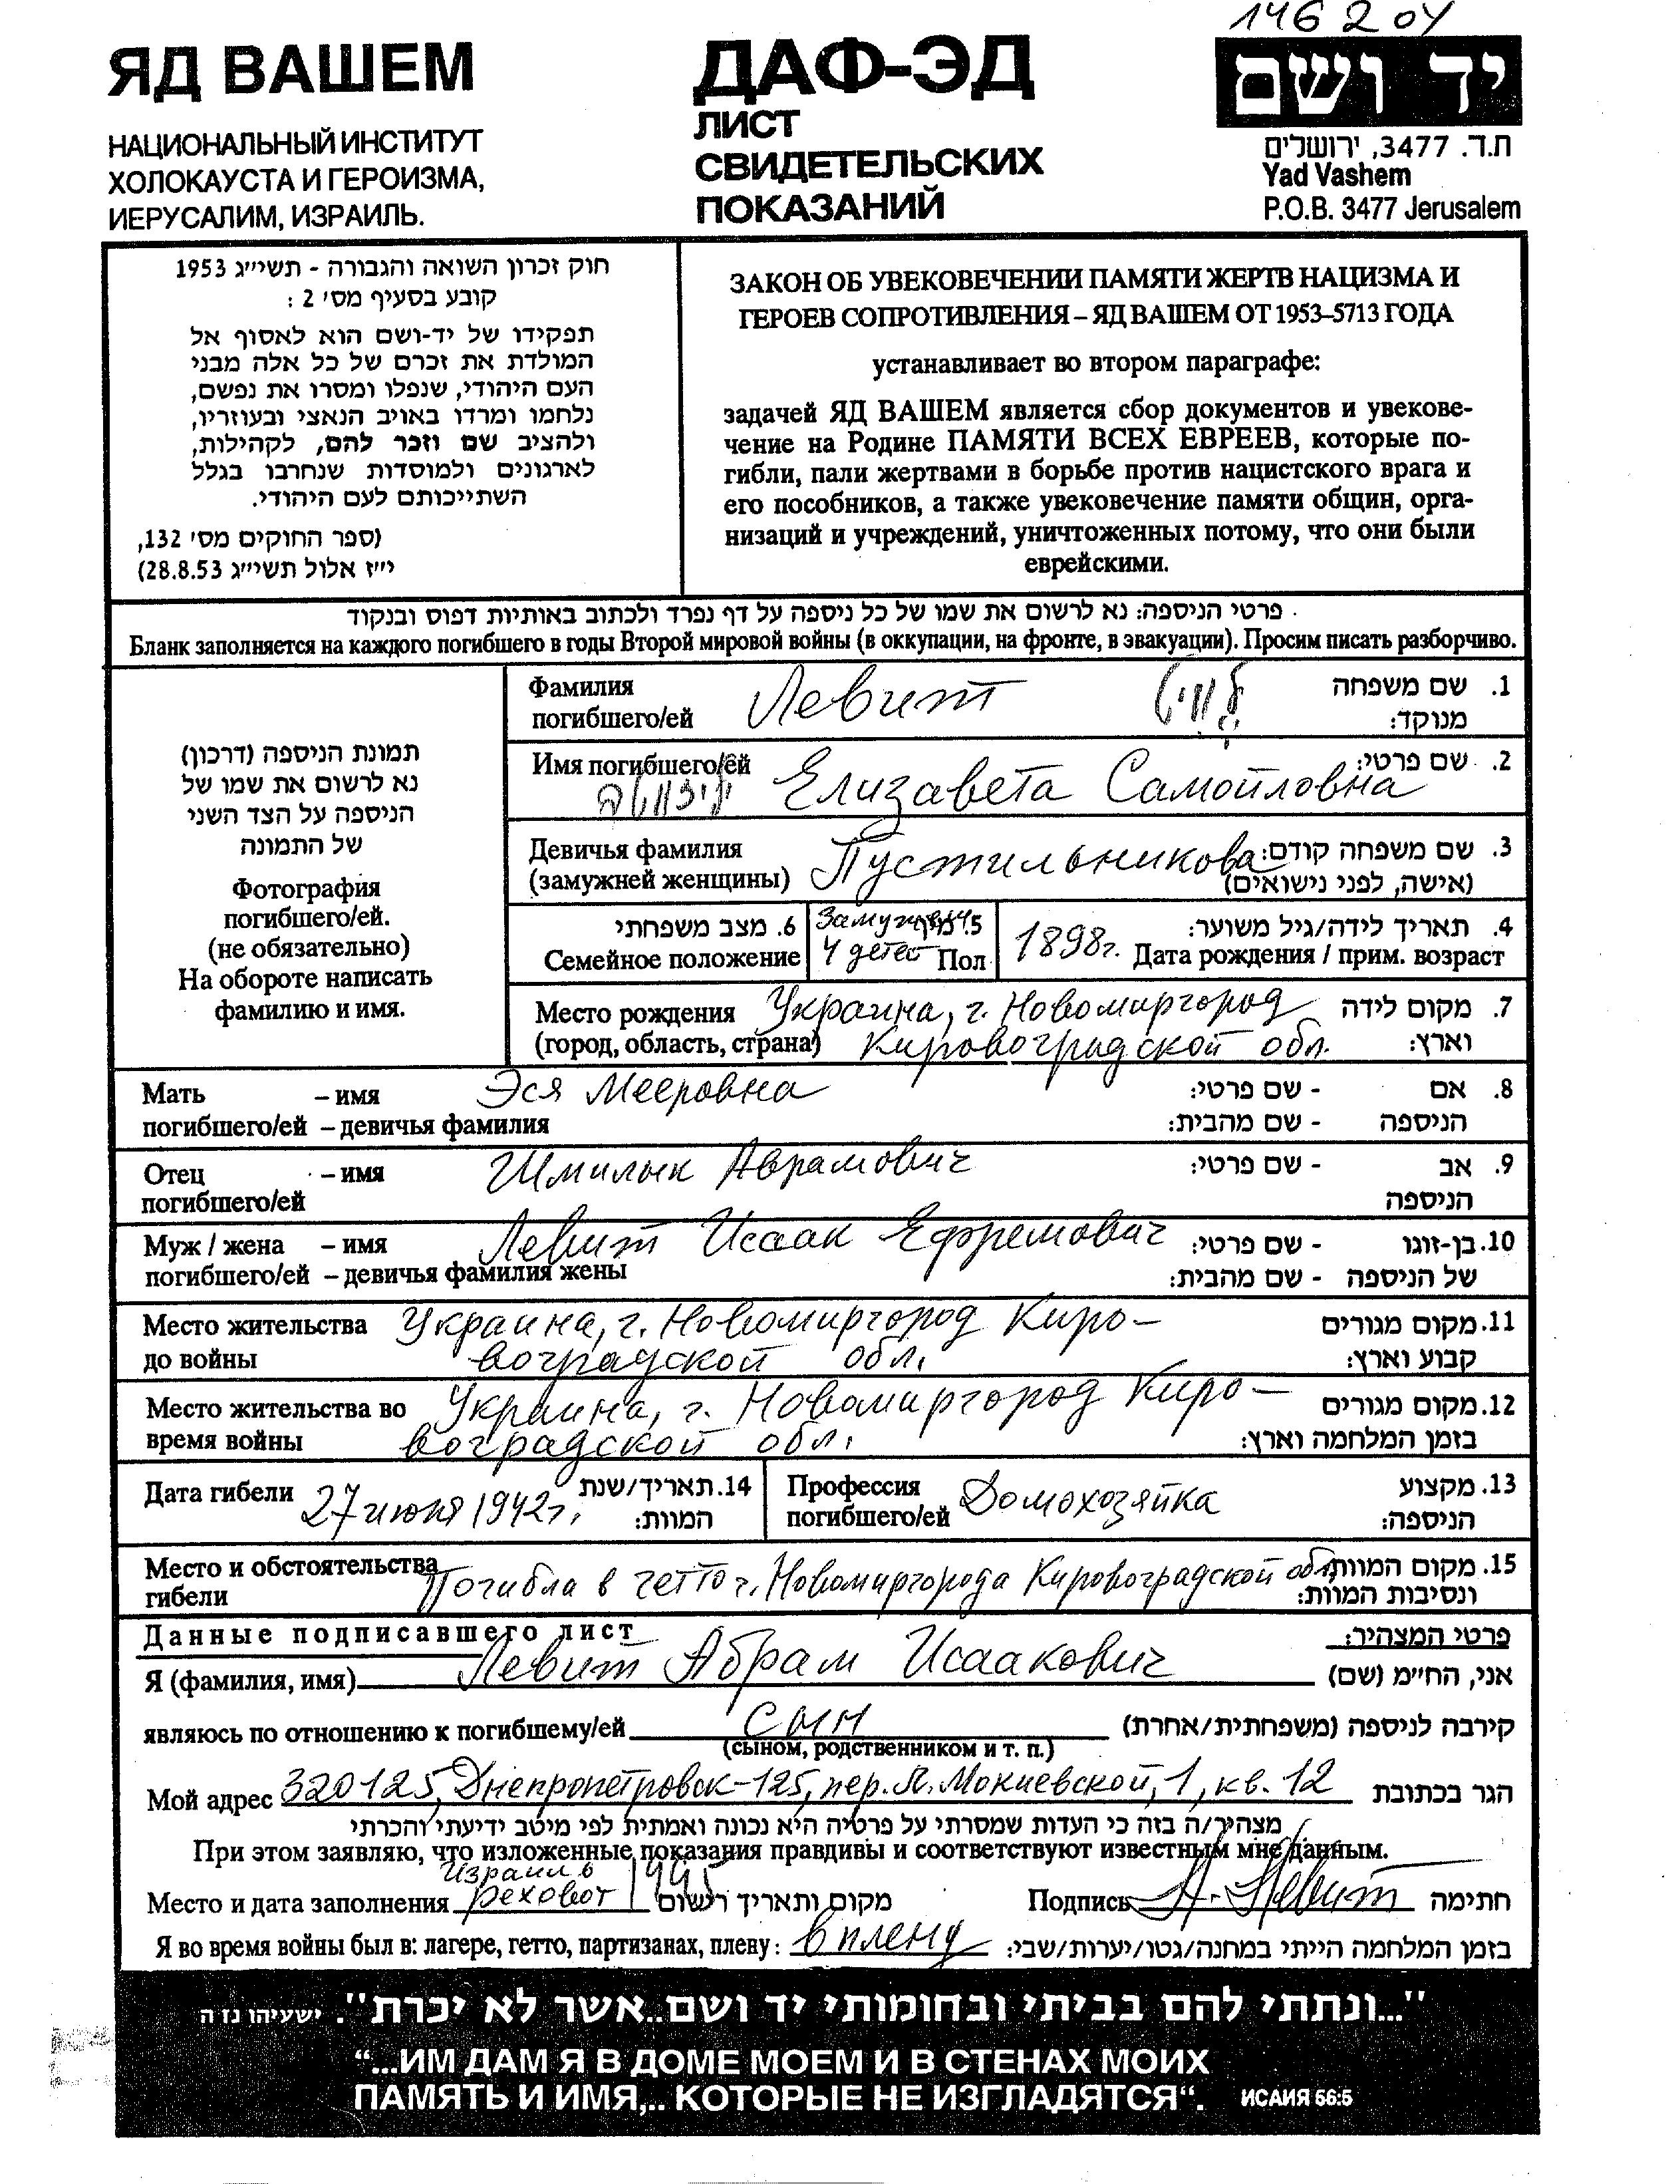 146204
ЯД ВАШЕМ
НАЦИОНАЛЬНЫЙ ИНСТИТУТ
ХОЛОКАУСТА И ГЕРОИЗМА,
ИЕРУСАЛИМ, ИЗРАИЛЬ.
ДАФ-ЭД
ЛИСТ
СВИДЕТЕЛЬСКИХ
ПОКАЗАНИЙ
יד ושם
ת.ד. 3477, ירושלים
Yad Vashem
P.O.B. 3477 Jerusalem
חוק זכרון השואה והגבורה - תשי״ג 1953
קובע בסעיף מס׳ 2 :
תפקידו של יד-ושם הוא לאסוף אל
המולדת את זכרם של כל אלה מבני
העם היהודי, שנפלו ומסרו את נפשם,
נלחמו ומרדו באויב הנאצי ובעוזריו,
ולהציב שם וזכר להם, לקהילות,
לארגונים ולמוסדות שנחרבו בגלל
השתייכותם לעם היהודי.
(ספר החוקים מס׳ 132,
י״ז אלול תשי״ג 28.8.53)
ЗАКОН ОБ УВЕКОВЕЧЕНИИ ПАМЯТИ ЖЕРТВ НАЦИЗМА И
ГЕРОЕВ СОПРОТИВЛЕНИЯ – ЯД ВАШЕМ ОТ 1953–5713 ГОДА
устанавливает во втором параграфе:
задачей ЯД ВАШЕМ является сбор документов и увекове-
чение на Родине ПАМЯТИ ВСЕХ ЕВРЕЕВ, которые по-
гибли, пали жертвами в борьбе против нацистского врага и
его пособников, а также увековечение памяти общин, орга-
низаций и учреждений, уничтоженных потому, что они были
еврейскими.
פרטי הניספה: נא לרשום את שמו של כל ניספה על דף נפרד ולכתוב באותיות דפוס ובנקוד
Бланк заполняется на каждого погибшего в годы Второй мировой войны (в оккупации, на фронте, в эвакуации). Просим писать разборчиво.
תמונת הניספה (דרכון)
נא לרשום את שמו של
הניספה על הצד השני
של התמונה
Фотография
погибшего/ей.
(не обязательно)
На обороте написать
фамилию и имя.
Фамилия Левит לויט 1. שם משפחה
погибшего/ей מנוקד:
Имя погибшего/ей Елизавета Самойловна 2. שם פרטי:
Девичья фамилия Пустильникова 3. שם משפחה קודם:
(замужней женщины) (אישה, לפני נישואים)
6. מצב משפחתי Замужем 5. מין 4. תאריך לידה/גיל משוער:
Семейное положение 4 детей Пол 1898г. Дата рождения / прим. возраст
Место рождения Украина, г. Новомиргород 7. מקום לידה
(город, область, страна) Кировоградской обл. וארץ:
Мать – имя Эся Мееровна - שם פרטי: 8. אם
погибшего/ей – девичья фамилия - שם מהבית: הניספה
Отец – имя Шмилык Аврамович - שם פרטי: 9. אב
погибшего/ей הניספה
Муж / жена – имя Левит Исаак Ефремович - שם פרטי: 10. בן-זוגו
погибшего/ей – девичья фамилия жены - שם מהבית: של הניספה
Место жительства Украина, г. Новомиргород Киро- 11. מקום מגורים
до войны воградской обл. קבוע וארץ:
Место жительства во Украина, г. Новомиргород Киро- 12. מקום מגורים
время войны воградской обл. בזמן המלחמה וארץ:
Дата гибели 27 июня 1942г. 14. תאריך/שנת המוות:
Профессия Домохозяйка 13. מקצוע
погибшего/ей הניספה:
Место и обстоятельства Погибла в гетто г. Новомиргорода Кировоградской обл. 15. מקום המוות
гибели ונסיבות המוות:
Данные подписавшего лист פרטי המצהיר:
Я (фамилия, имя) Левит Абрам Исаакович אני, החי״מ (שם)
являюсь по отношению к погибшему/ей сын קירבה לניספה (משפחתית/אחרת)
(сыном, родственником и т. п.)
Мой адрес 320125, Днепропетровск-125, пер. Л. Мокиевской, 1, кв. 12 הגר בכתובת
מצהיר/ה בזה כי העדות שמסרתי על פרטיה היא נכונה ואמתית לפי מיטב ידיעתי והכרתי
При этом заявляю, что изложенные показания правдивы и соответствуют известным мне данным.
Израиль
Место и дата заполнения Реховот 1995 מקום ותאריך רישום Подпись А. Левит חתימה
Я во время войны был в: лагере, гетто, партизанах, плену: в плену בזמן המלחמה הייתי במחנה/גטו/יערות/שבי:
"...ונתתי להם בביתי ובחומותי יד ושם..אשר לא יכרת". ישעיהו נו ה
“...ИМ ДАМ Я В ДОМЕ МОЕМ И В СТЕНАХ МОИХ
ПАМЯТЬ И ИМЯ,.. КОТОРЫЕ НЕ ИЗГЛАДЯТСЯ“. ИСАИЯ 56:5